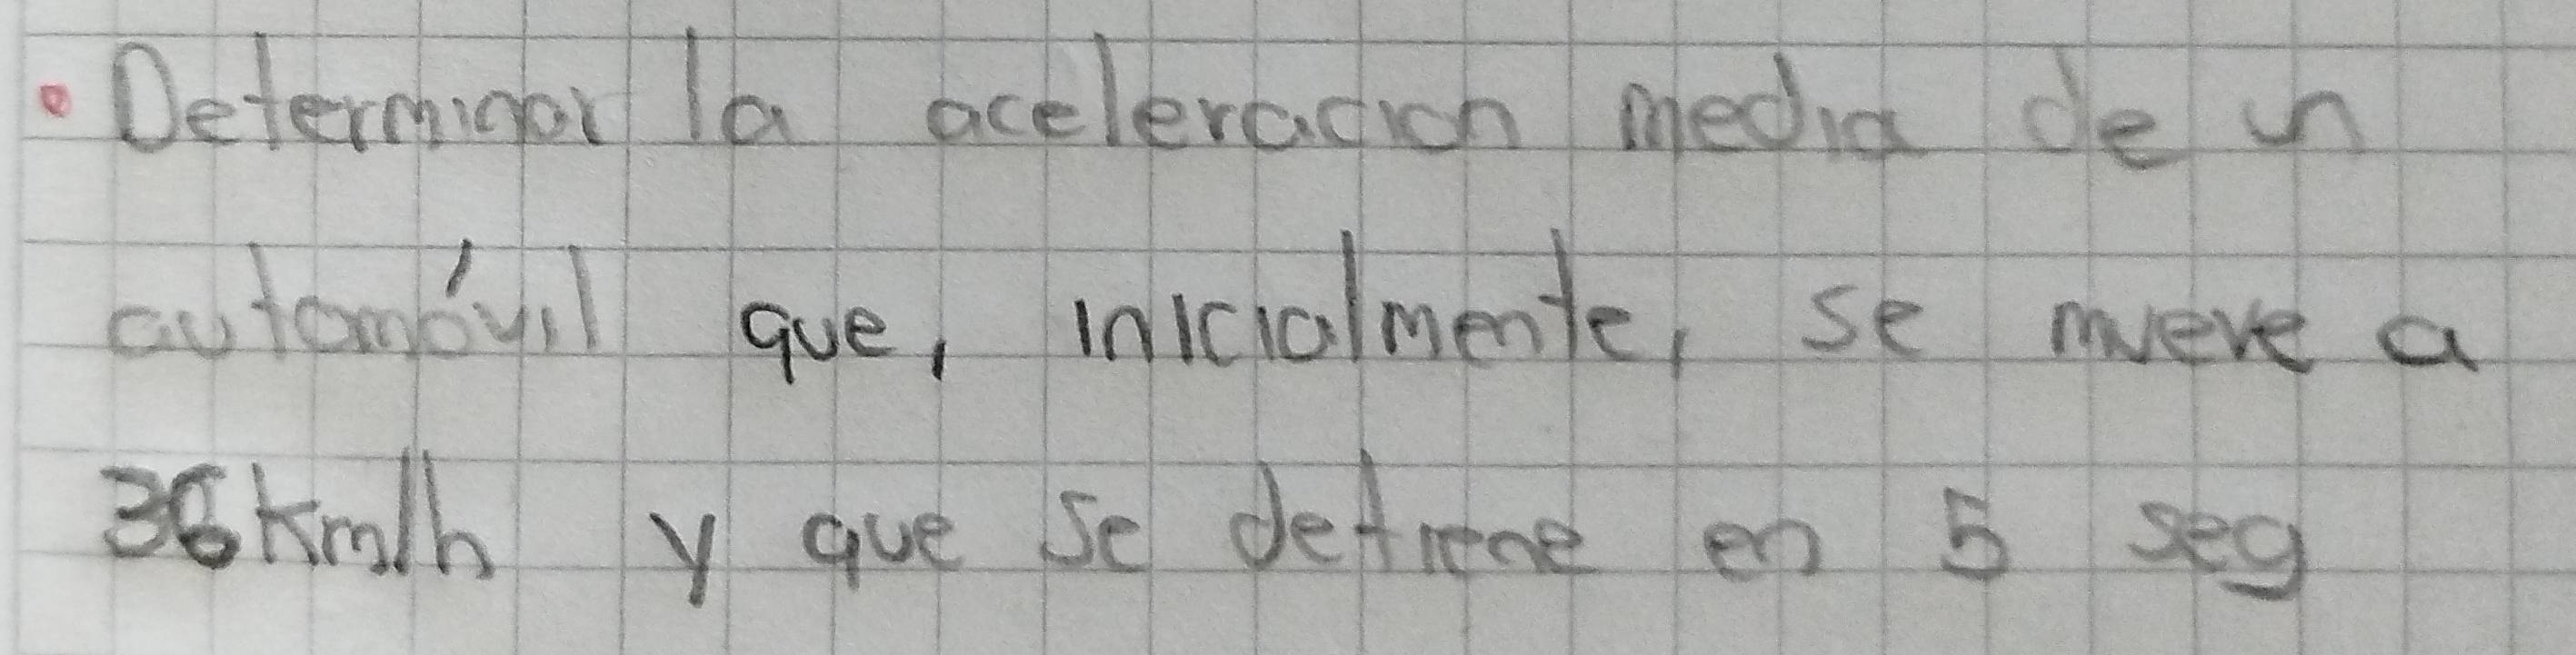 • Determinar la aceleracion media de un
automóvil que, inicialmente, se mueve a
36 Km/h y que se detiene en 5 seg